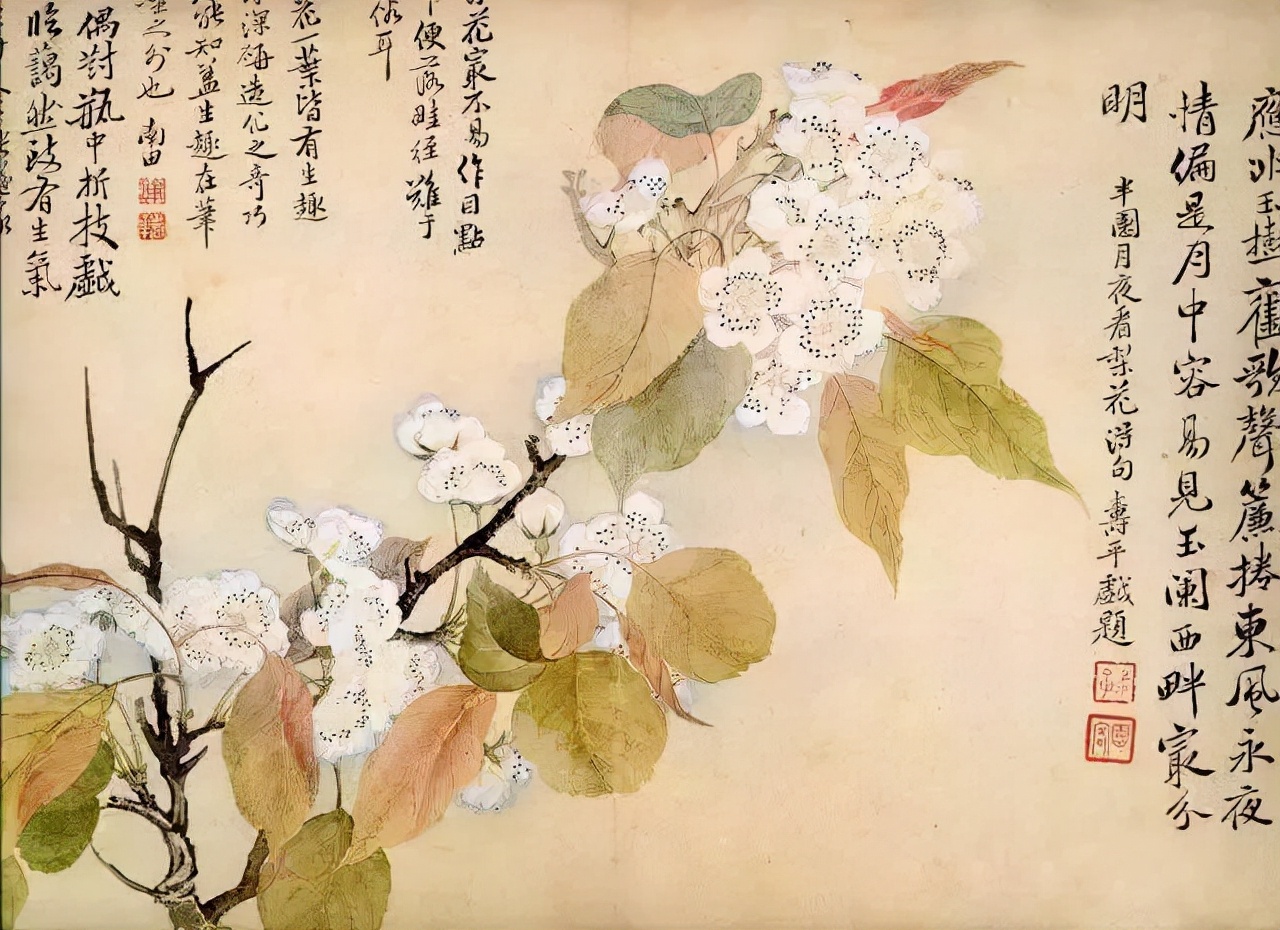 應非玉樹舊歌聲簾捲東風永夜
情偏是月中容易見玉闌西畔最分
明
半園月夜看梨花得句 壽平戲題
花最不易作目點
便落畦徑難于
耳
花一葉皆有生趣
深造化之奇巧
能知蓋生趣在筆
之外也 南田
偶對瓶中折枝戲
臨藹然頗有生氣